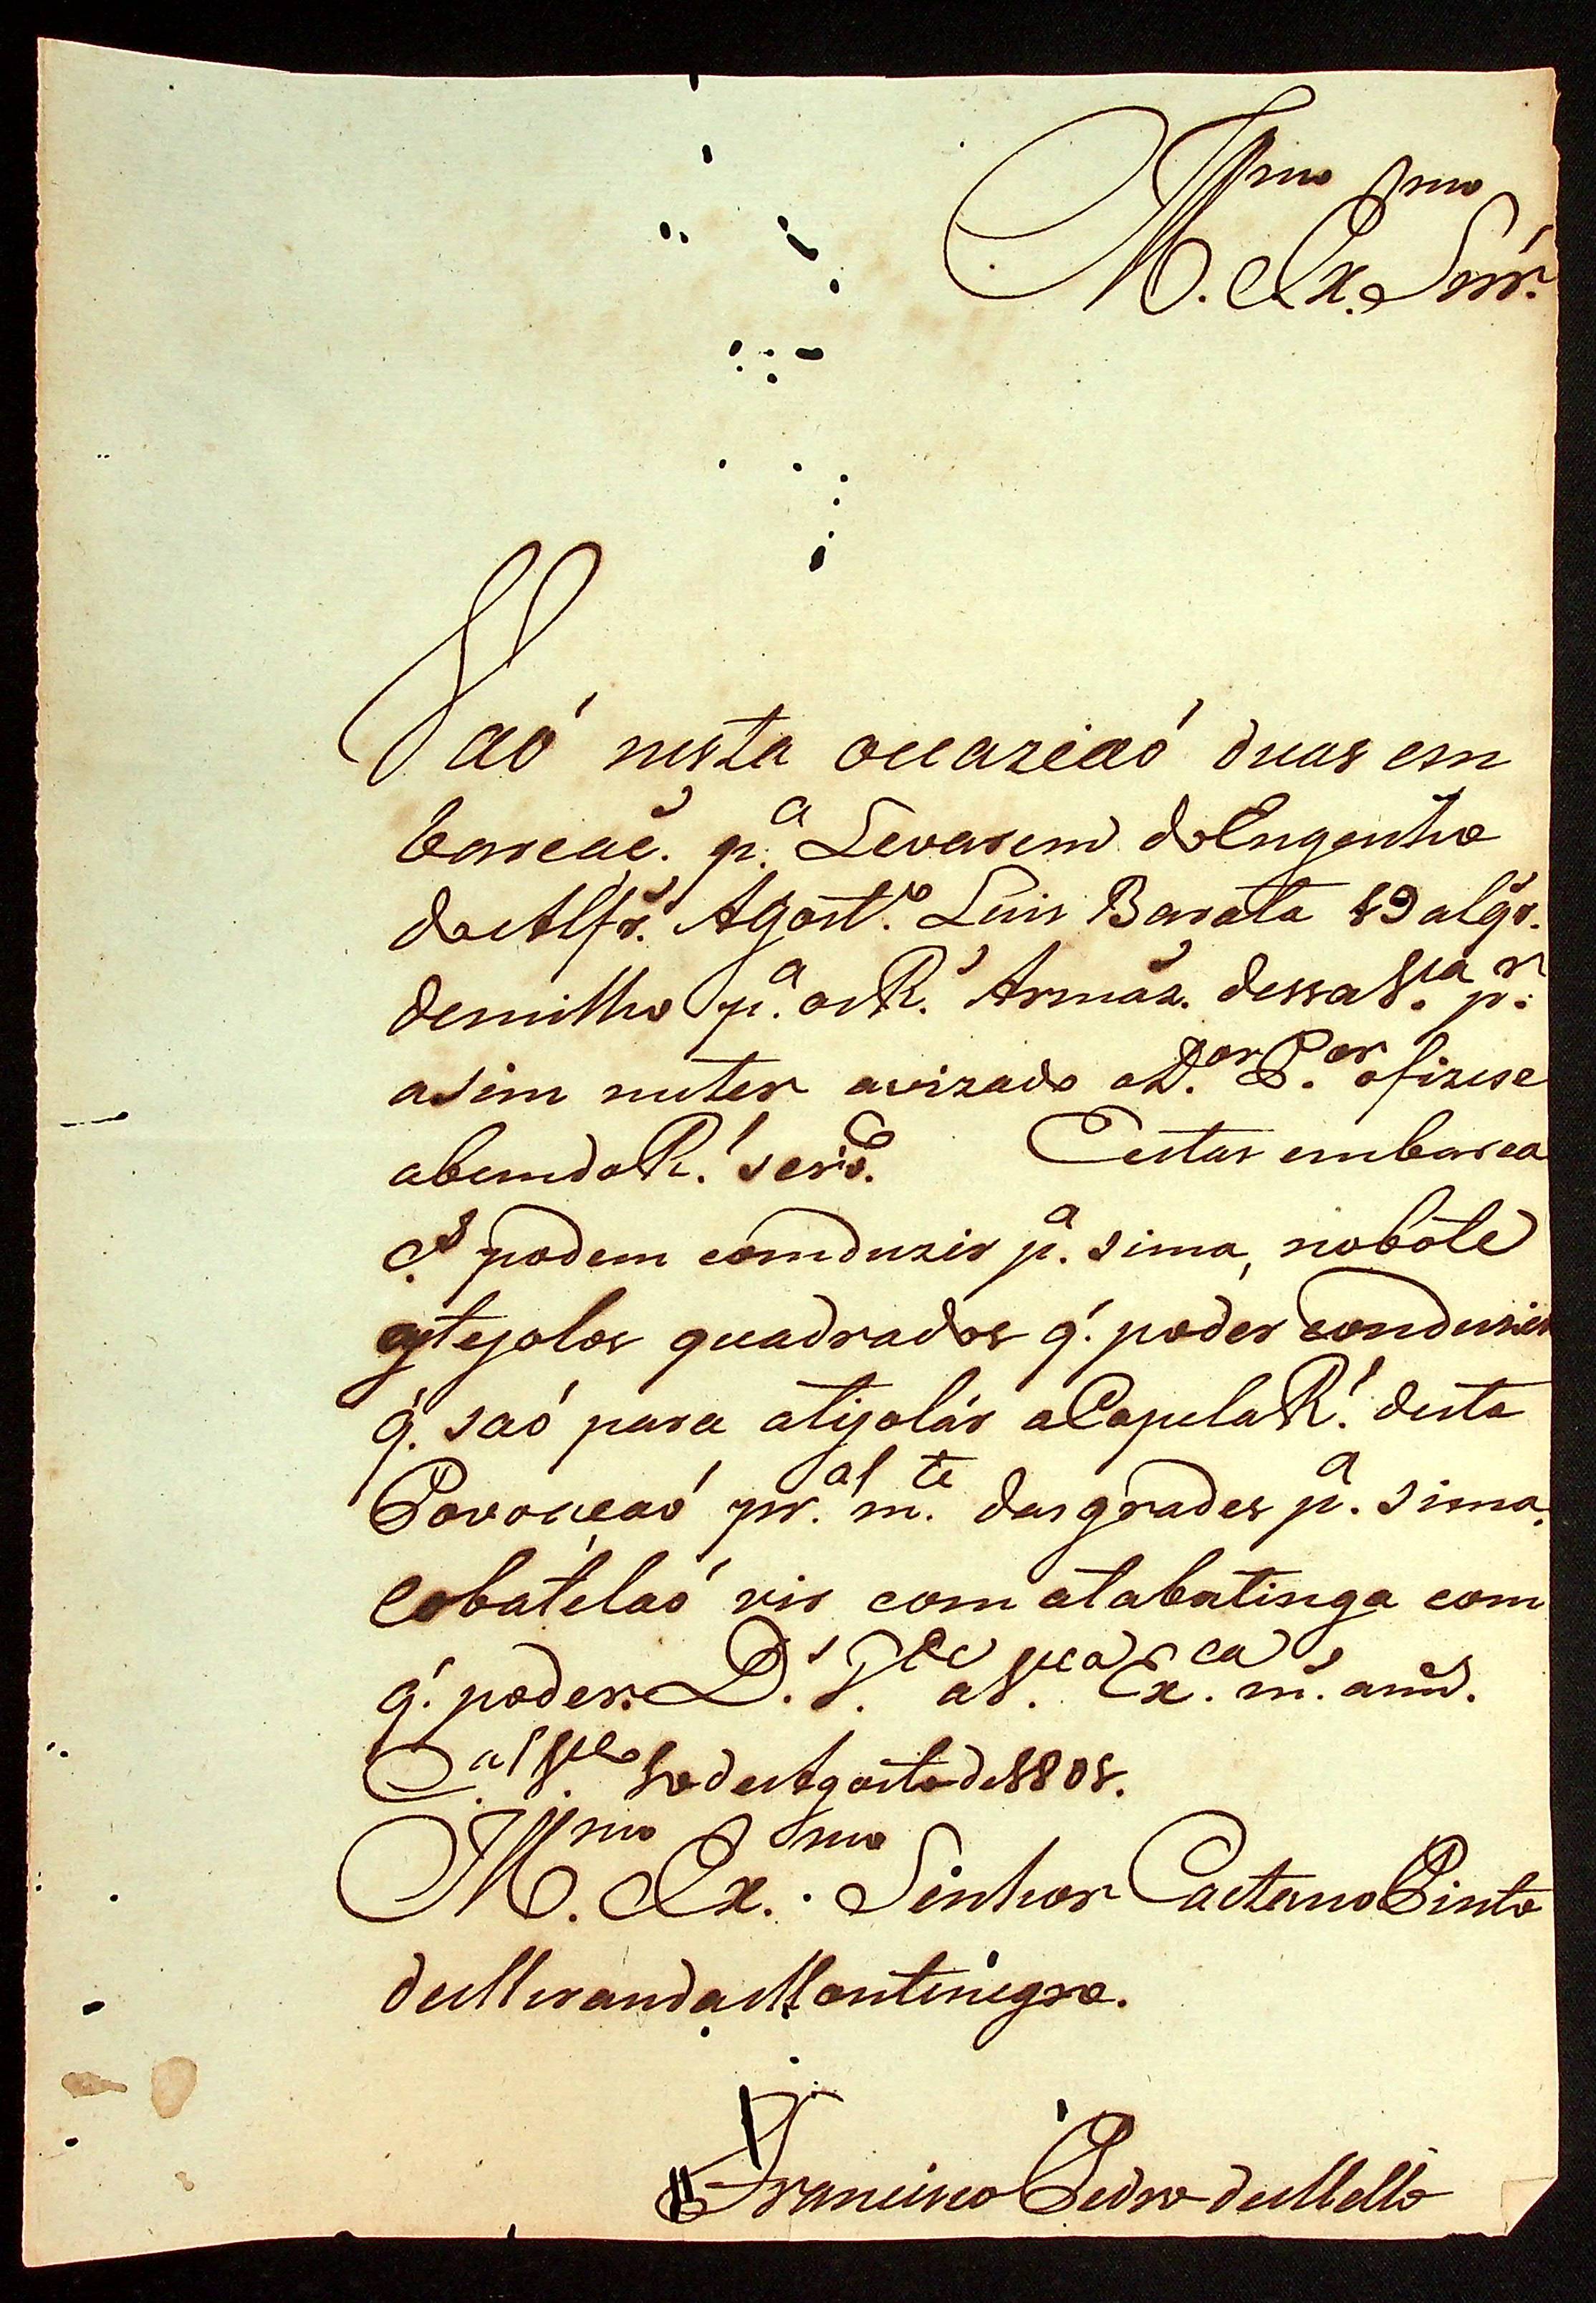 Ill.mo Ex.mo Snr.
Vaó nesta occaziaó duas em
barcaç. p.a Levarem do Engenho
do Alfr.s Agost.o Luis Barata 19 alqr.
de milho p.a os R.s Armaz. dessa V.a p.r
asim me ter avizado o D.or P.or o fizese
a bem do R.l serv.o Eestas embarca
ç.s podem comduzir p.a sima, no bote
os tejolos quadrados q. poder conduzir
q. saó para atijolár a Capela R.l desta
Povoaçaó pr.al m.te das grades p.a sima.
e o batelaó vir com a tabatinga com
q. poder. D.s G.de a V.a Ex.ca m.s ann.
C.al V.a de Agosto de 1801.
Ill.mo Ex.mo Senhor Caetano Pinto
de Miranda Montenegro.
Francisco Pedro de Mello